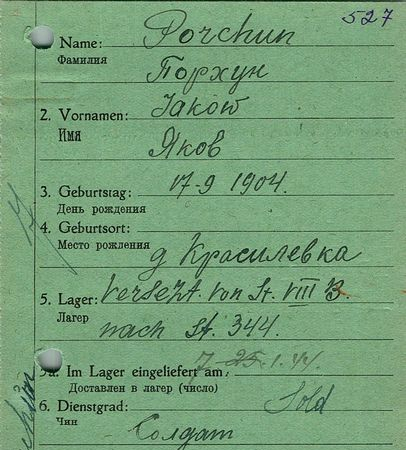 527
Name: Porchun
Фамилия
Порхун
2. Vornamen: Jakow
Имя
Яков
3. Geburtstag: 17-9 1904.
День рождения
4. Geburtsort:
Место рождения
д Красилевка
5. Lager: Versetzt. von St. VIII B.
Лагер
nach St. 344.
5a. Im Lager eingeliefert am 1. 44.
Доставлен в лагер (число)
6. Dienstgrad: Sold
Чин
Солдат